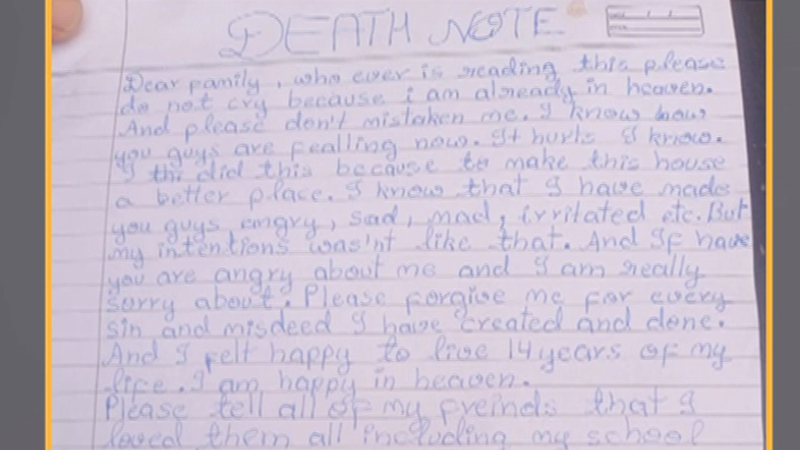 DEATH NOTE
Dear family, who ever is reading this please
do not cry because i am already in heaven.
And please don't mistaken me. I know how
you guys are fealling now. It hurts I know.
I thi did this because to make this house
a better place. I know that I have made
you guys angry, sad, mad, irritated etc. But
my intentions was'nt like that. And If have
you are angry about me and I am really
sorry about. Please forgive me for every
sin and misdeed I have created and done.
And I felt happy to live 14 years of my
life. I am happy in heaven.
Please tell all of my freinds that I
loved them all including my school